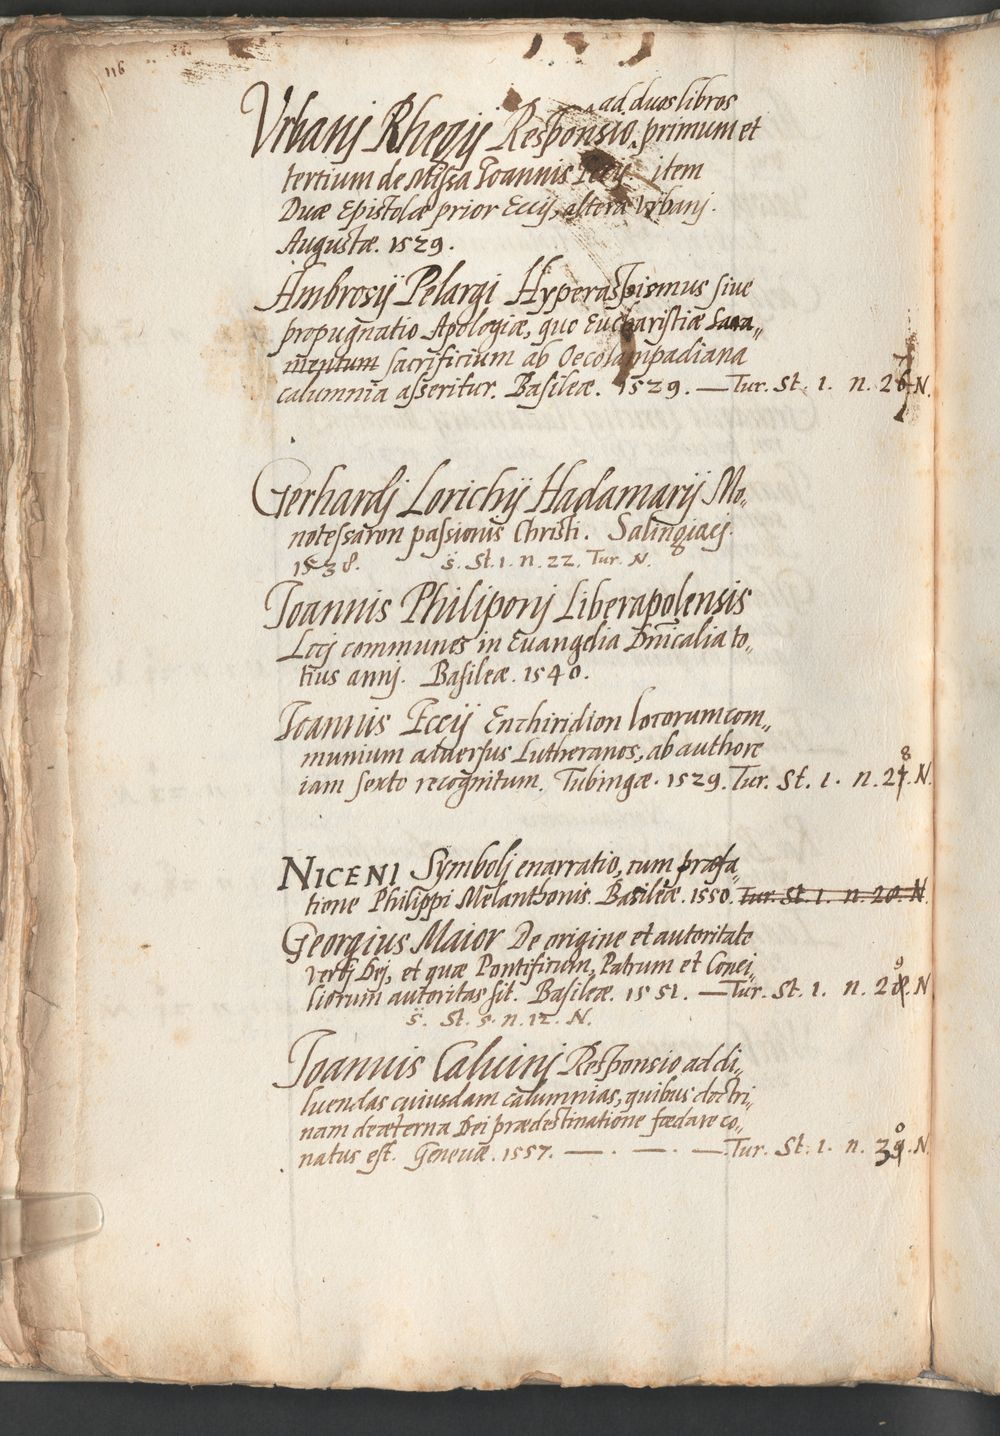 116
ad duos libros
Vrbanj Rhegij Responsio. primum et
tertium de Missa Ioannis Eccij. item
Duæ Epistolæ prior Eccij, altera Vrbanj.
Augustæ. 1529.
Ambrosij Pelargi Hyperaspismus siue
propugnatio Apologiæ, quo Eucharistiæ Sacra„
mentum sacrificium ab Oecolampadiana
calumnia asseritur. Basileæ. 1529. — Tur. St. 1. n. 27. N.
Gerhardj Lorichij Hadamarij Mo„
notessaron passionis Christi. Salingiacj.
1538. s̈. St. 1. n. 22. Tur. N.
Ioannis Philiponj Liberapolensis
Locj communes in Euangelia Dn̄icalia to„
tius annj. Basileæ. 1540.
Ioannis Eccij Enchiridion locorum com„
munium aduersus Lutheranos, ab authore
iam sexto recognitum. Tubingæ. 1529. Tur. St. 1. n. 28. N.
NICENI Symbolj enarratio, cum præfa„
tione Philippi Melanthonis. Basileæ. 1550. Tur. St. 1. n. 20. N
Georgius Maior De origine et autoritate
verbj Dej, et quæ Pontificum, Patrum et Conci„
liorum autoritas sit. Basileæ. 1551. — Tur. St. 1. n. 29. N
s̈. St. 5. n. 12. N.
Ioannis Caluinj Responsio ad di„
luendas cuiusdam calumnias, quibus doctri„
nam de æterna Dei prædestinatione fœdare co„
natus est. Geneuæ. 1557. — . — . — . Tur. St. 1. n. 30. N.